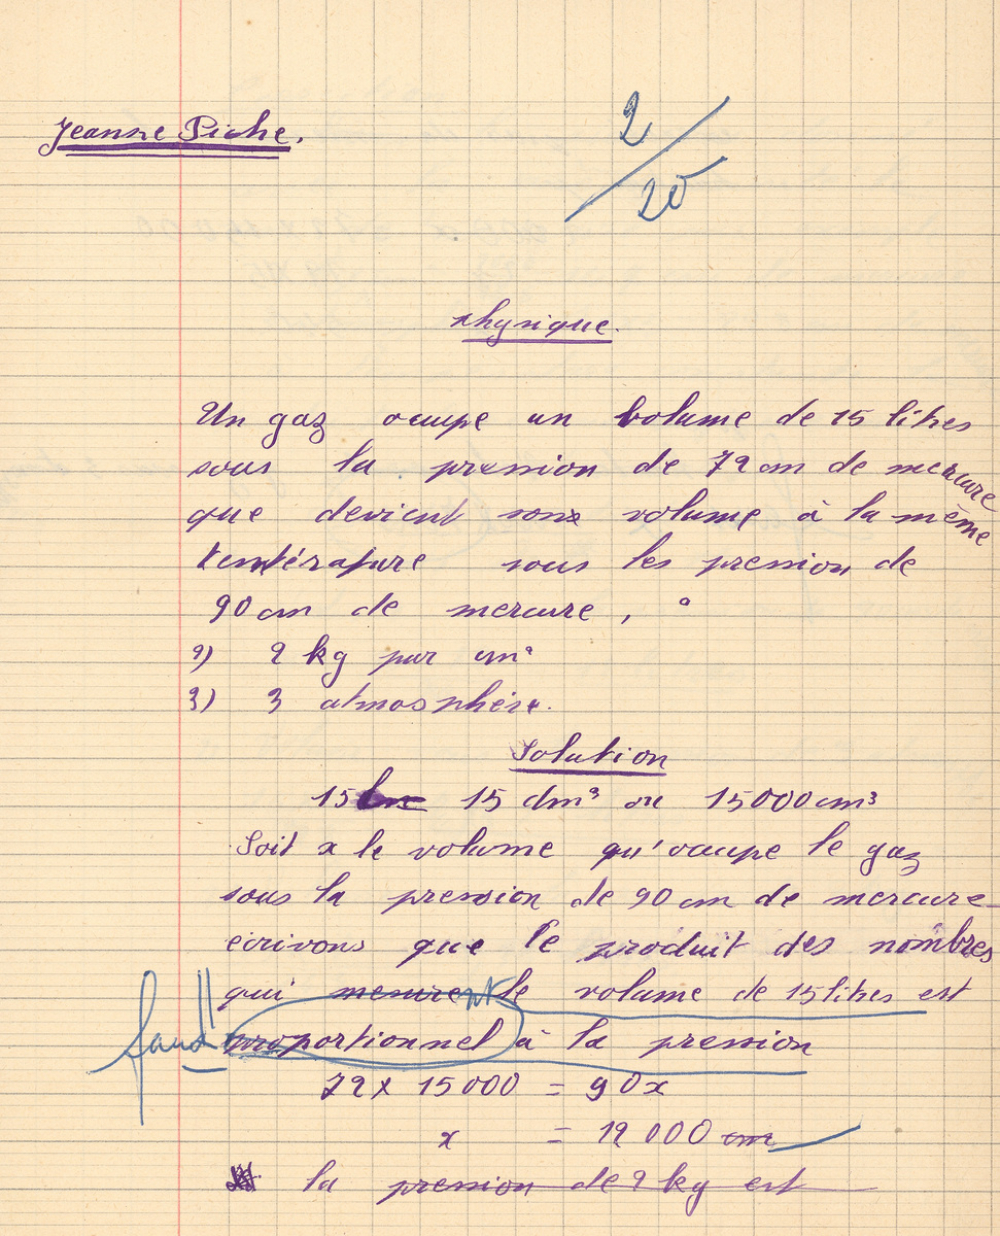 Jeanne Piche.
2/20
Physique.
Un gaz ocupe un volume de 15 litres
sous la pression de 72 cm de mercure
que devient sons volume à la même
température sous les pression de
90 cm de mercure,
2) 2 kg par cm²
3) 3 atmosphère.
Solution
15 15 dm³ ou 15000 cm³
Soit x le volume qu'ocupe le gaz
sous la pression de 90 cm de mercure
ecrivons que le produit des nombres
qui mesurent le volume de 15 litres est
faux!! proportionnel à la pression
72 x 15000 = 90x
x = 12000 cm
la pression de 2 kg est